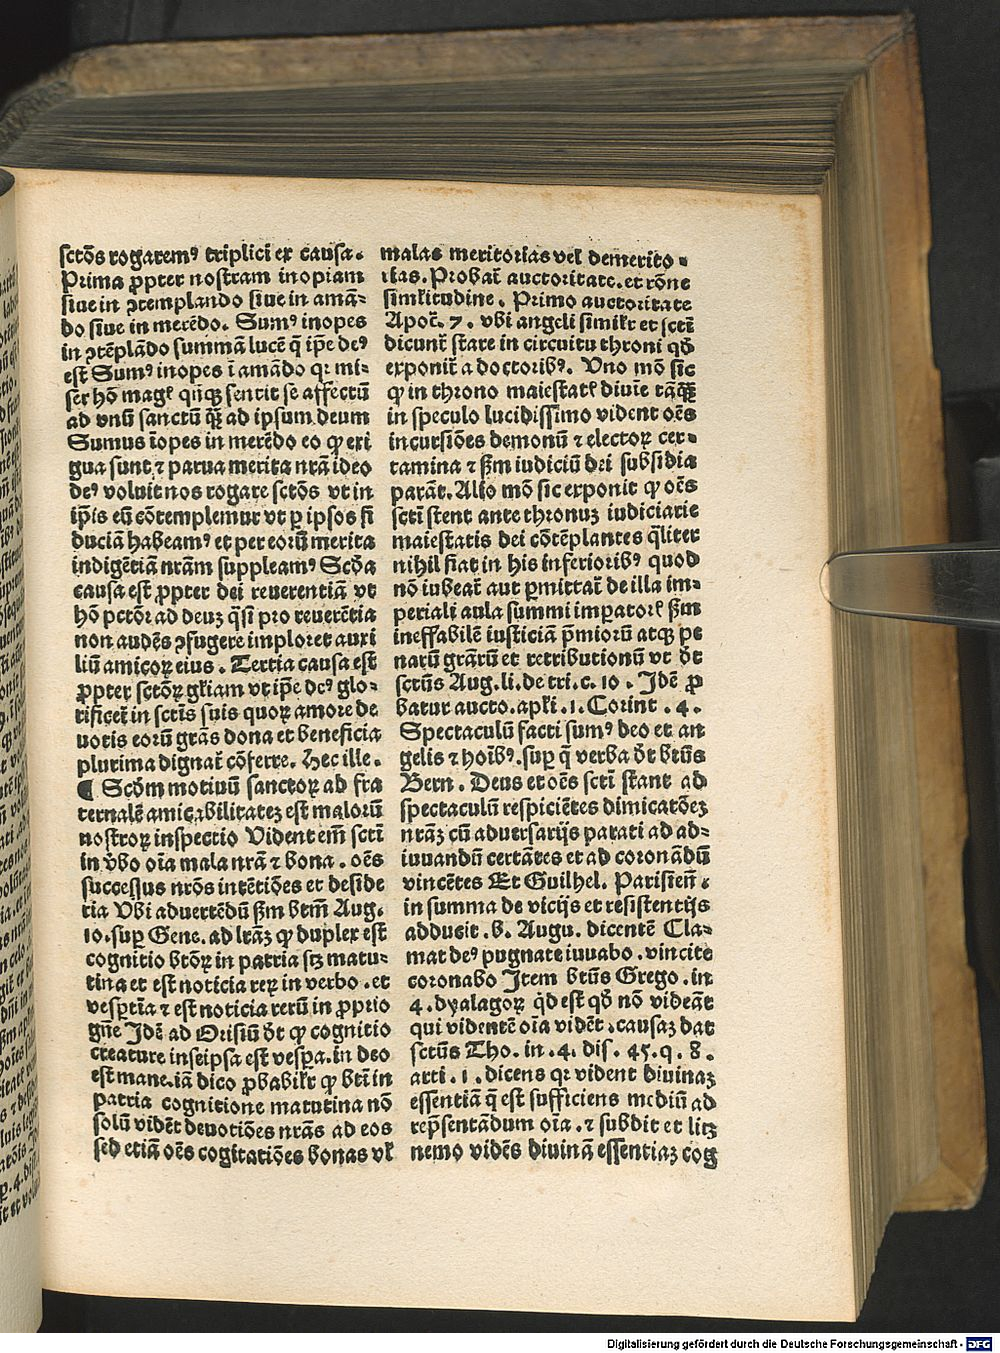 sctōs rogaremꝰ triplici ex causa.
Prima ꝓpter nostram inopiam
siue in ꝯtemplando siue in amā-
do siue in merēdo. Sumꝰ inopes
in ꝯtēplādo summā lucē q̄ ip̄e deꝰ
est Sumꝰ inopes ī amādo qꝛ mi-
ser hō magꝭ qn̄qꝫ sentit se affectū
ad vnū sanctū qꝫ̄ ad ipsum deum
Sumus īopes in merēdo eo ꝙ exi
gua sunt ⁊ parua merita nr̄a ideo
deꝰ voluit nos rogare sctōs vt in
ip̄is eū cōtemplemur vt ꝑ ipsos fi
duciā habeamꝰ et per eorū merita
indigētiā nr̄am suppleamꝰ Scd̄a
causa est ꝓpter dei reuerentiā vt
hō pctōr ad deuꝫ q̄si pro reuerētia
non audēs ꝯfugere imploret auxi
liū amicoꝝ eius. Tertia causa est
ꝓpter sctōꝝ gl̄iam vt ip̄e deꝰ glo-
rificet̄ in sctīs suis quoꝝ amore de
uotis eorū grās dona et beneficia
plurima dignat̄ cōferre. Hec ille.
¶ Scd̄m motiuū sanctoꝝ ab fra
ternalē amicabilitatez est malorū
nostroꝝ inspectio Vident em̄ sctī
in v̄bo oīa mala nr̄a ⁊ bona. oēs
successus nrōs intētiōes et deside
ria Vbi aduertēdū ẜm btm̄ Aug.
10. suꝑ Gene. ad lr̄aꝫ ꝙ duplex est
cognitio btōꝝ in patria scꝫ matu-
tina et est noticia reꝝ in verbo. et
vesꝑtīa ⁊ est noticia rerū in ꝓprio
gn̄e Idē ad Orisiū dt̄ ꝙ cognitio
creature inseipsa est vesꝑa. in deo
est mane. iā dico ꝓbabilr̄ ꝙ btī in
patria cognitione matutina nō
solū vidēt deuotiōes nrās ad eos
sed etiā oēs cogitatiōes bonas vl̄
malas meritorias vel demerito-
rias. Probat̄ auctoritate. et rōne
simlitudine. Primo auctoritate
Apoc̄. 7. vbi angeli similr̄ et sctī
dicunt̄ stare in circuitu throni qd̄
exponit̄ a doctoribꝰ. Uno mō sic
ꝙ in throno maiestatꝭ diuīe tāqꝫ̄
in speculo lucidissimo vident oēs
incursiōes demonū ⁊ electoꝝ cer-
tamina ⁊ ẜm iudiciū dei subsidia
parāt. Alio mō sic exponit ꝙ oēs
sctī stent ante thronuꝫ iudiciarie
maiestatis dei cōtēplantes q̄liter
nihil fiat in his inferioribꝰ quod
nō iubeat̄ aut ꝑmittat̄ de illa im-
periali aula summi imꝑatorꝭ ẜm
ineffabilē iusticiā p̄miorū atqꝫ pe
narū grārū et retributionū vt dt̄
sctūs Aug. li. de tri. c. 10. Idē ꝓ
batur aucto. apl̄i. 1. Corint. 4.
Spectaculū facti sumꝰ deo et an
gelis ⁊ hoībꝰ. suꝑ q̄ verba dt̄ btūs
Bern. Deus et oēs sctī stant ad
spectaculū respiciētes dimicatōeꝫ
nrāꝫ cū aduersarijs parati ad ad-
iuuandū certātes et ad coronādū
vincētes Et Guilhel. Parisien̄.
in summa de vicijs et resistentijs
adducit. b. Augu. dicentē Cla-
mat deꝰ pugnate iuuabo. vincite
coronabo Item btūs Grego. in
4. dyalagoꝝ q̇d est qd̄ nō videāt
qui videntē oīa vidēt. causaꝫ dat
sctūs Tho. in. 4. dis. 45. q. 8.
arti. 1. dicens qꝛ vident diuinaꝫ
essentiā q̄ est sufficiens mediū ad
rep̄sentādum oīa. ⁊ subdit et licꝫ
nemo vidēs diuinā essentiaꝫ cog
Digitalisierung gefördert durch die Deutsche Forschungsgemeinschaft - DFG